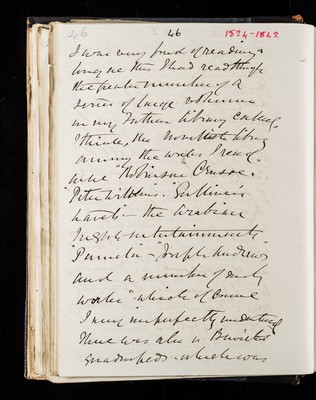 46 46 1824-1842
I was very fond of reading &
long ere this I had read through
the greater number of a
series of large volumes
in my Fathers library called,
I think, the Novelists library
among the works I read
were "Robinson Crusoe"
"Peter Wilkins". "Gulliver's
travels" - the Arabian
Nights entertainments
"Pamela" - Joseph Andrews
and a number of such
works - which of course
I very imperfectly understood
There was also a Bewick's
Quadrupeds - which was